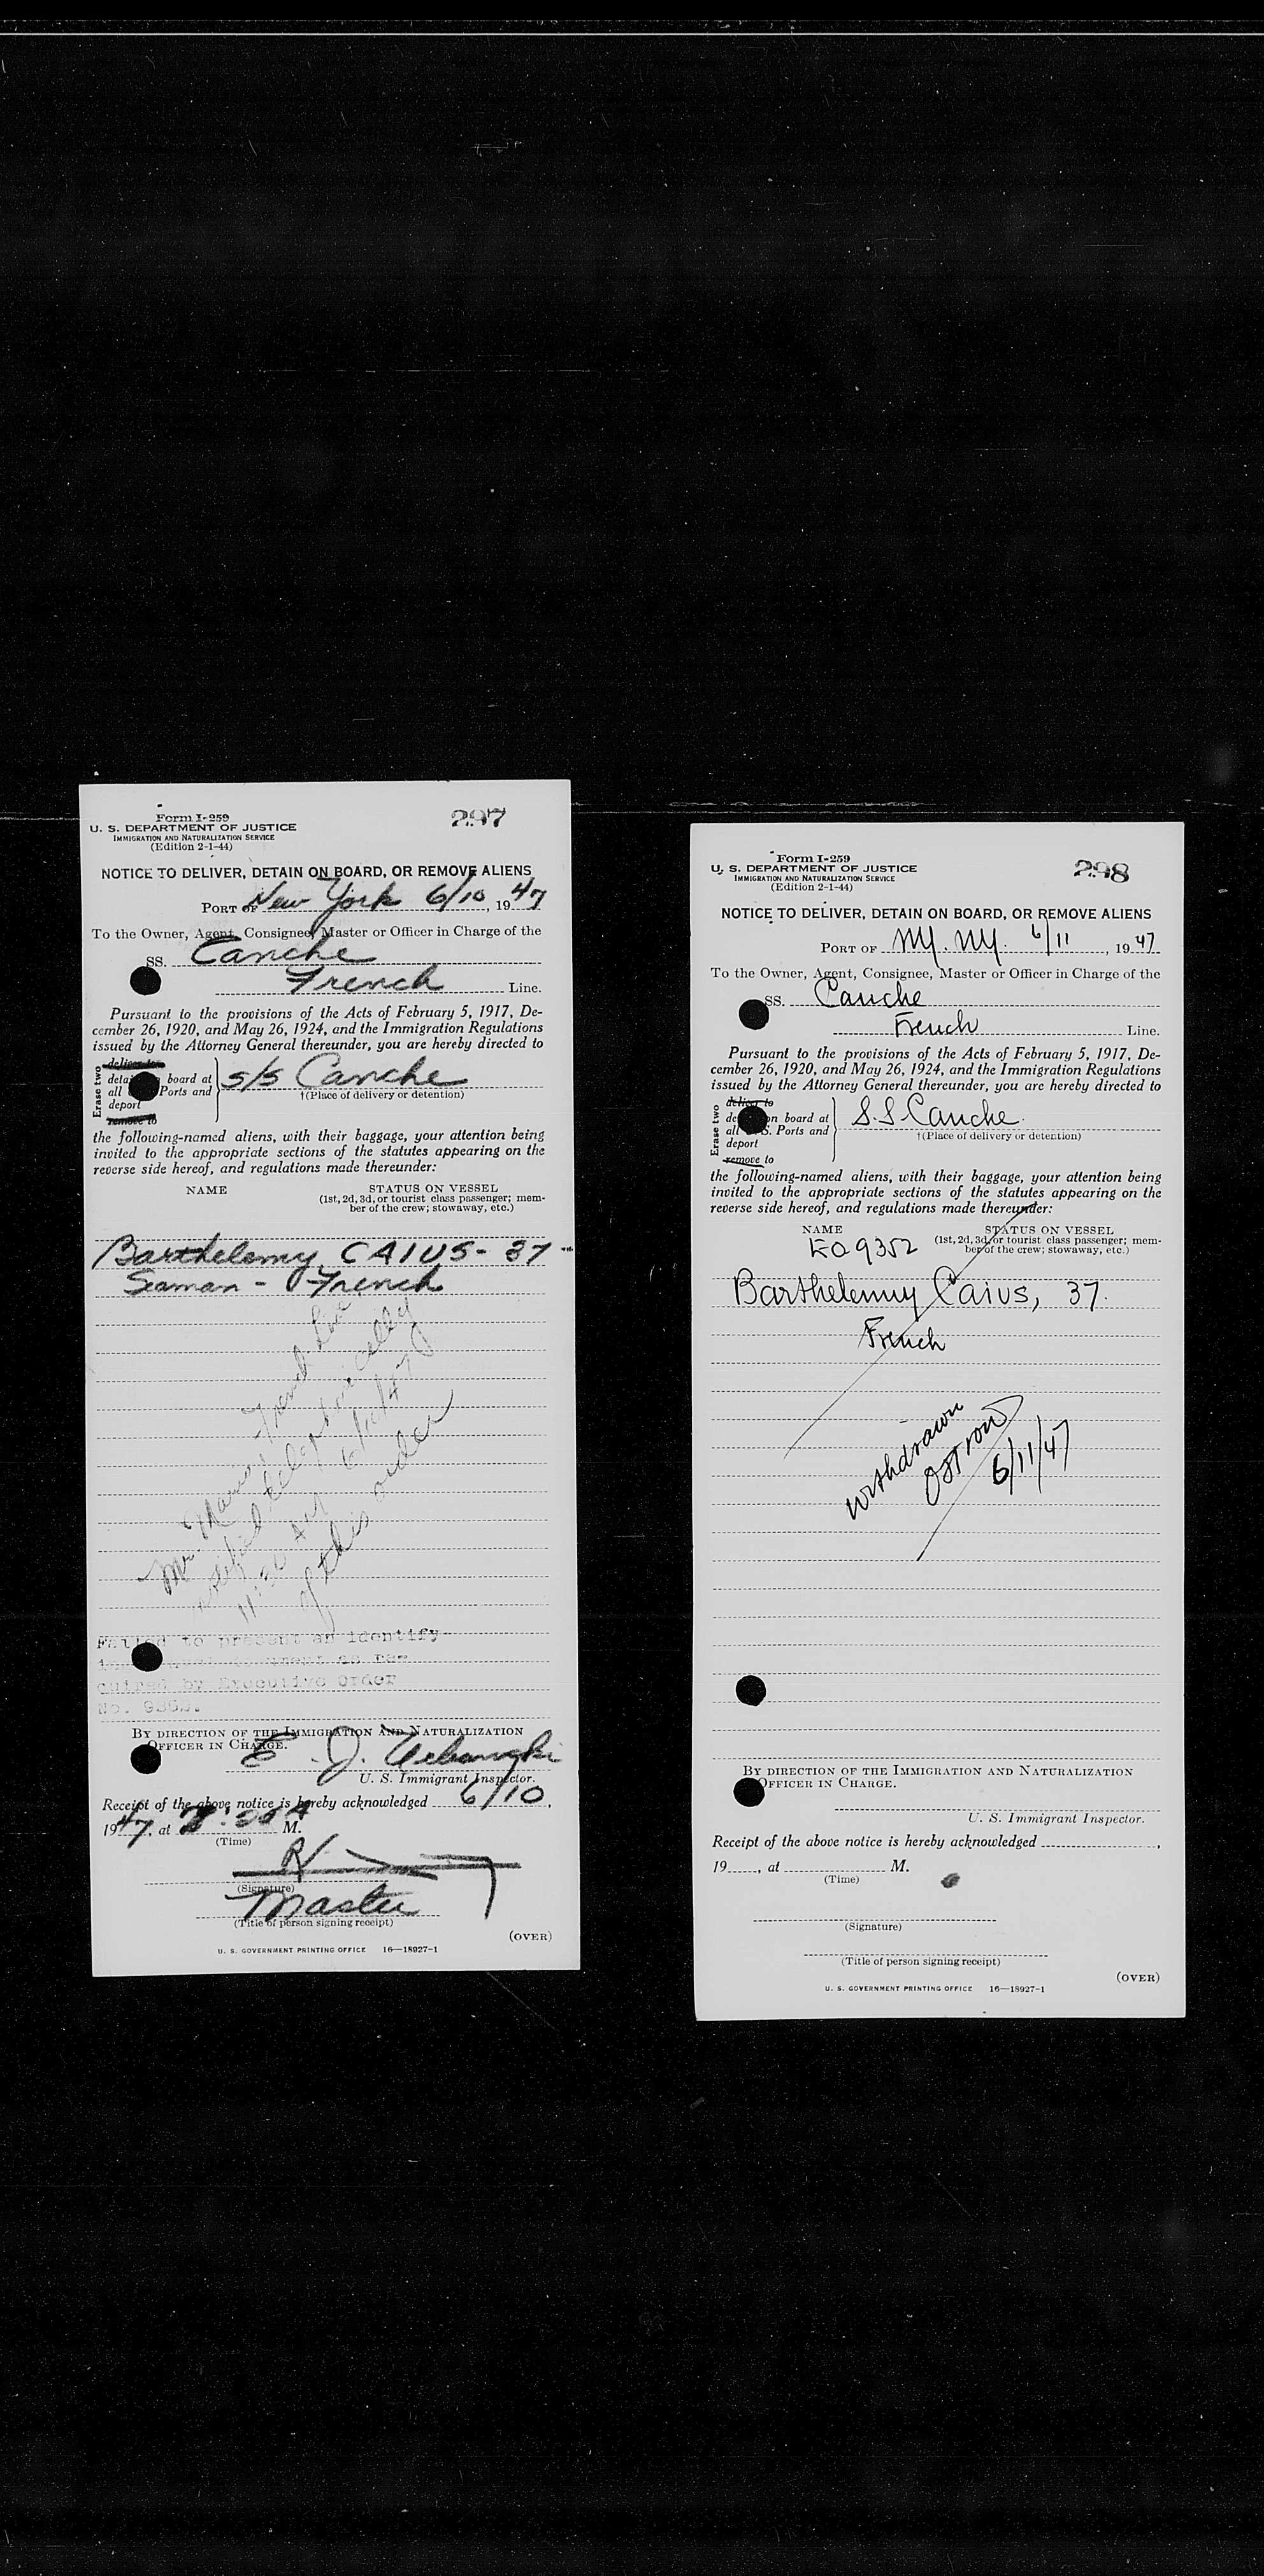 Form I-259
297
U. S. DEPARTMENT OF JUSTICE
IMMIGRATION AND NATURALIZATION SERVICE
(Edition 2-1-44)
NOTICE TO DELIVER, DETAIN ON BOARD, OR REMOVE ALIENS
PORT OF New York 6/10, 1947
To the Owner, Agent, Consignee, Master or Officer in Charge of the
SS. Canche
French Line.
Pursuant to the provisions of the Acts of February 5, 1917, De-
cember 26, 1920, and May 26, 1924, and the Immigration Regulations
issued by the Attorney General thereunder, you are hereby directed to
Erase two
deliver to
board at
all Ports and
deport
remove to
s/s Canche
†(Place of delivery or detention)
the following-named aliens, with their baggage, your attention being
invited to the appropriate sections of the statutes appearing on the
reverse side hereof, and regulations made thereunder:
NAME
STATUS ON VESSEL
(1st, 2d, 3d, or tourist class passenger; mem-
ber of the crew; stowaway, etc.)
Barthelemy CAIUS - 37 -
Seaman - French
Mr. French Line
notified telephonically
11:30 AM 6/10/47
of this order
Failed to present an identify-
document as re-
quired by Executive Order
No. 9352.
BY DIRECTION OF THE IMMIGRATION AND NATURALIZATION
OFFICER IN CHARGE.
E. J.
U. S. Immigrant Inspector.
Receipt of the above notice is hereby acknowledged 6/10,
1947, at M.
(Time)
(Signature)
Master
(Title of person signing receipt)
(OVER)
U. S. GOVERNMENT PRINTING OFFICE 16—18927-1
Form I-259
298
U. S. DEPARTMENT OF JUSTICE
IMMIGRATION AND NATURALIZATION SERVICE
(Edition 2-1-44)
NOTICE TO DELIVER, DETAIN ON BOARD, OR REMOVE ALIENS
PORT OF NY. NY. 6/11, 1947
To the Owner, Agent, Consignee, Master or Officer in Charge of the
SS. Canche
French Line.
Pursuant to the provisions of the Acts of February 5, 1917, De-
cember 26, 1920, and May 26, 1924, and the Immigration Regulations
issued by the Attorney General thereunder, you are hereby directed to
Erase two
deliver to
on board at
all S. Ports and
deport
remove to
S.S. Canche
†(Place of delivery or detention)
the following-named aliens, with their baggage, your attention being
invited to the appropriate sections of the statutes appearing on the
reverse side hereof, and regulations made thereunder:
NAME
STATUS ON VESSEL
(1st, 2d, 3d, or tourist class passenger; mem-
ber of the crew; stowaway, etc.)
EO 9352
Barthelemy Caius, 37.
French
withdrawn
Ostrow
6/11/47
BY DIRECTION OF THE IMMIGRATION AND NATURALIZATION
OFFICER IN CHARGE.
U. S. Immigrant Inspector.
Receipt of the above notice is hereby acknowledged ,
19 , at M.
(Time)
(Signature)
(Title of person signing receipt)
(OVER)
U. S. GOVERNMENT PRINTING OFFICE 16—18927-1